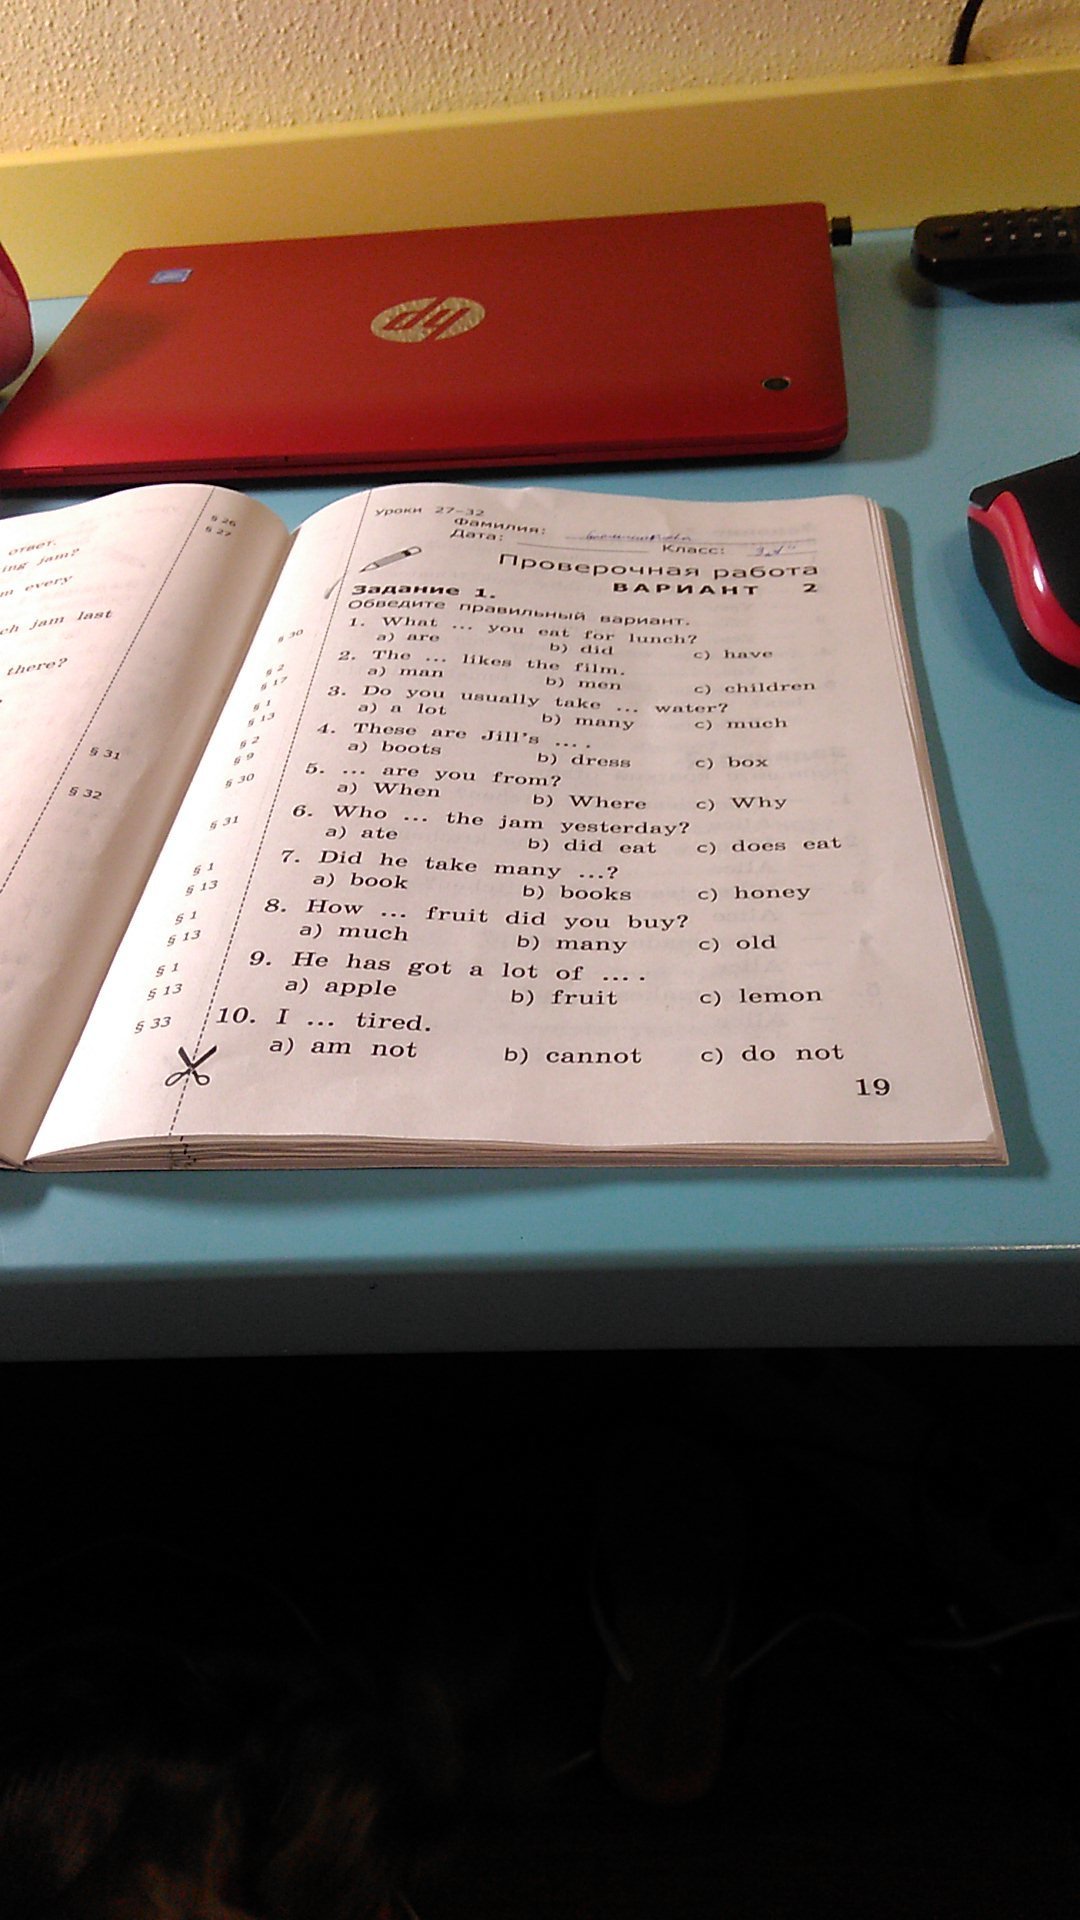 ответ.
ing jam?
m every
ch jam last
there?
§ 26
§ 27
§ 31
§ 32
hp
уроки 27–32
Фамилия:
Дата: Класс: 3 "А"
Проверочная работа
Задание 1. ВАРИАНТ 2
Обведите правильный вариант.
§ 30 1. What ... you eat for lunch?
a) are b) did c) have
§ 2 2. The ... likes the film.
§ 17 a) man b) men c) children
§ 1 3. Do you usually take ... water?
§ 13 a) a lot b) many c) much
§ 2 4. These are Jill's ... .
§ 9 a) boots b) dress c) box
§ 30 5. ... are you from?
a) When b) Where c) Why
§ 31 6. Who ... the jam yesterday?
a) ate b) did eat c) does eat
§ 1 7. Did he take many ...?
§ 13 a) book b) books c) honey
§ 1 8. How ... fruit did you buy?
§ 13 a) much b) many c) old
§ 1 9. He has got a lot of ... .
§ 13 a) apple b) fruit c) lemon
§ 33 10. I ... tired.
a) am not b) cannot c) do not
19